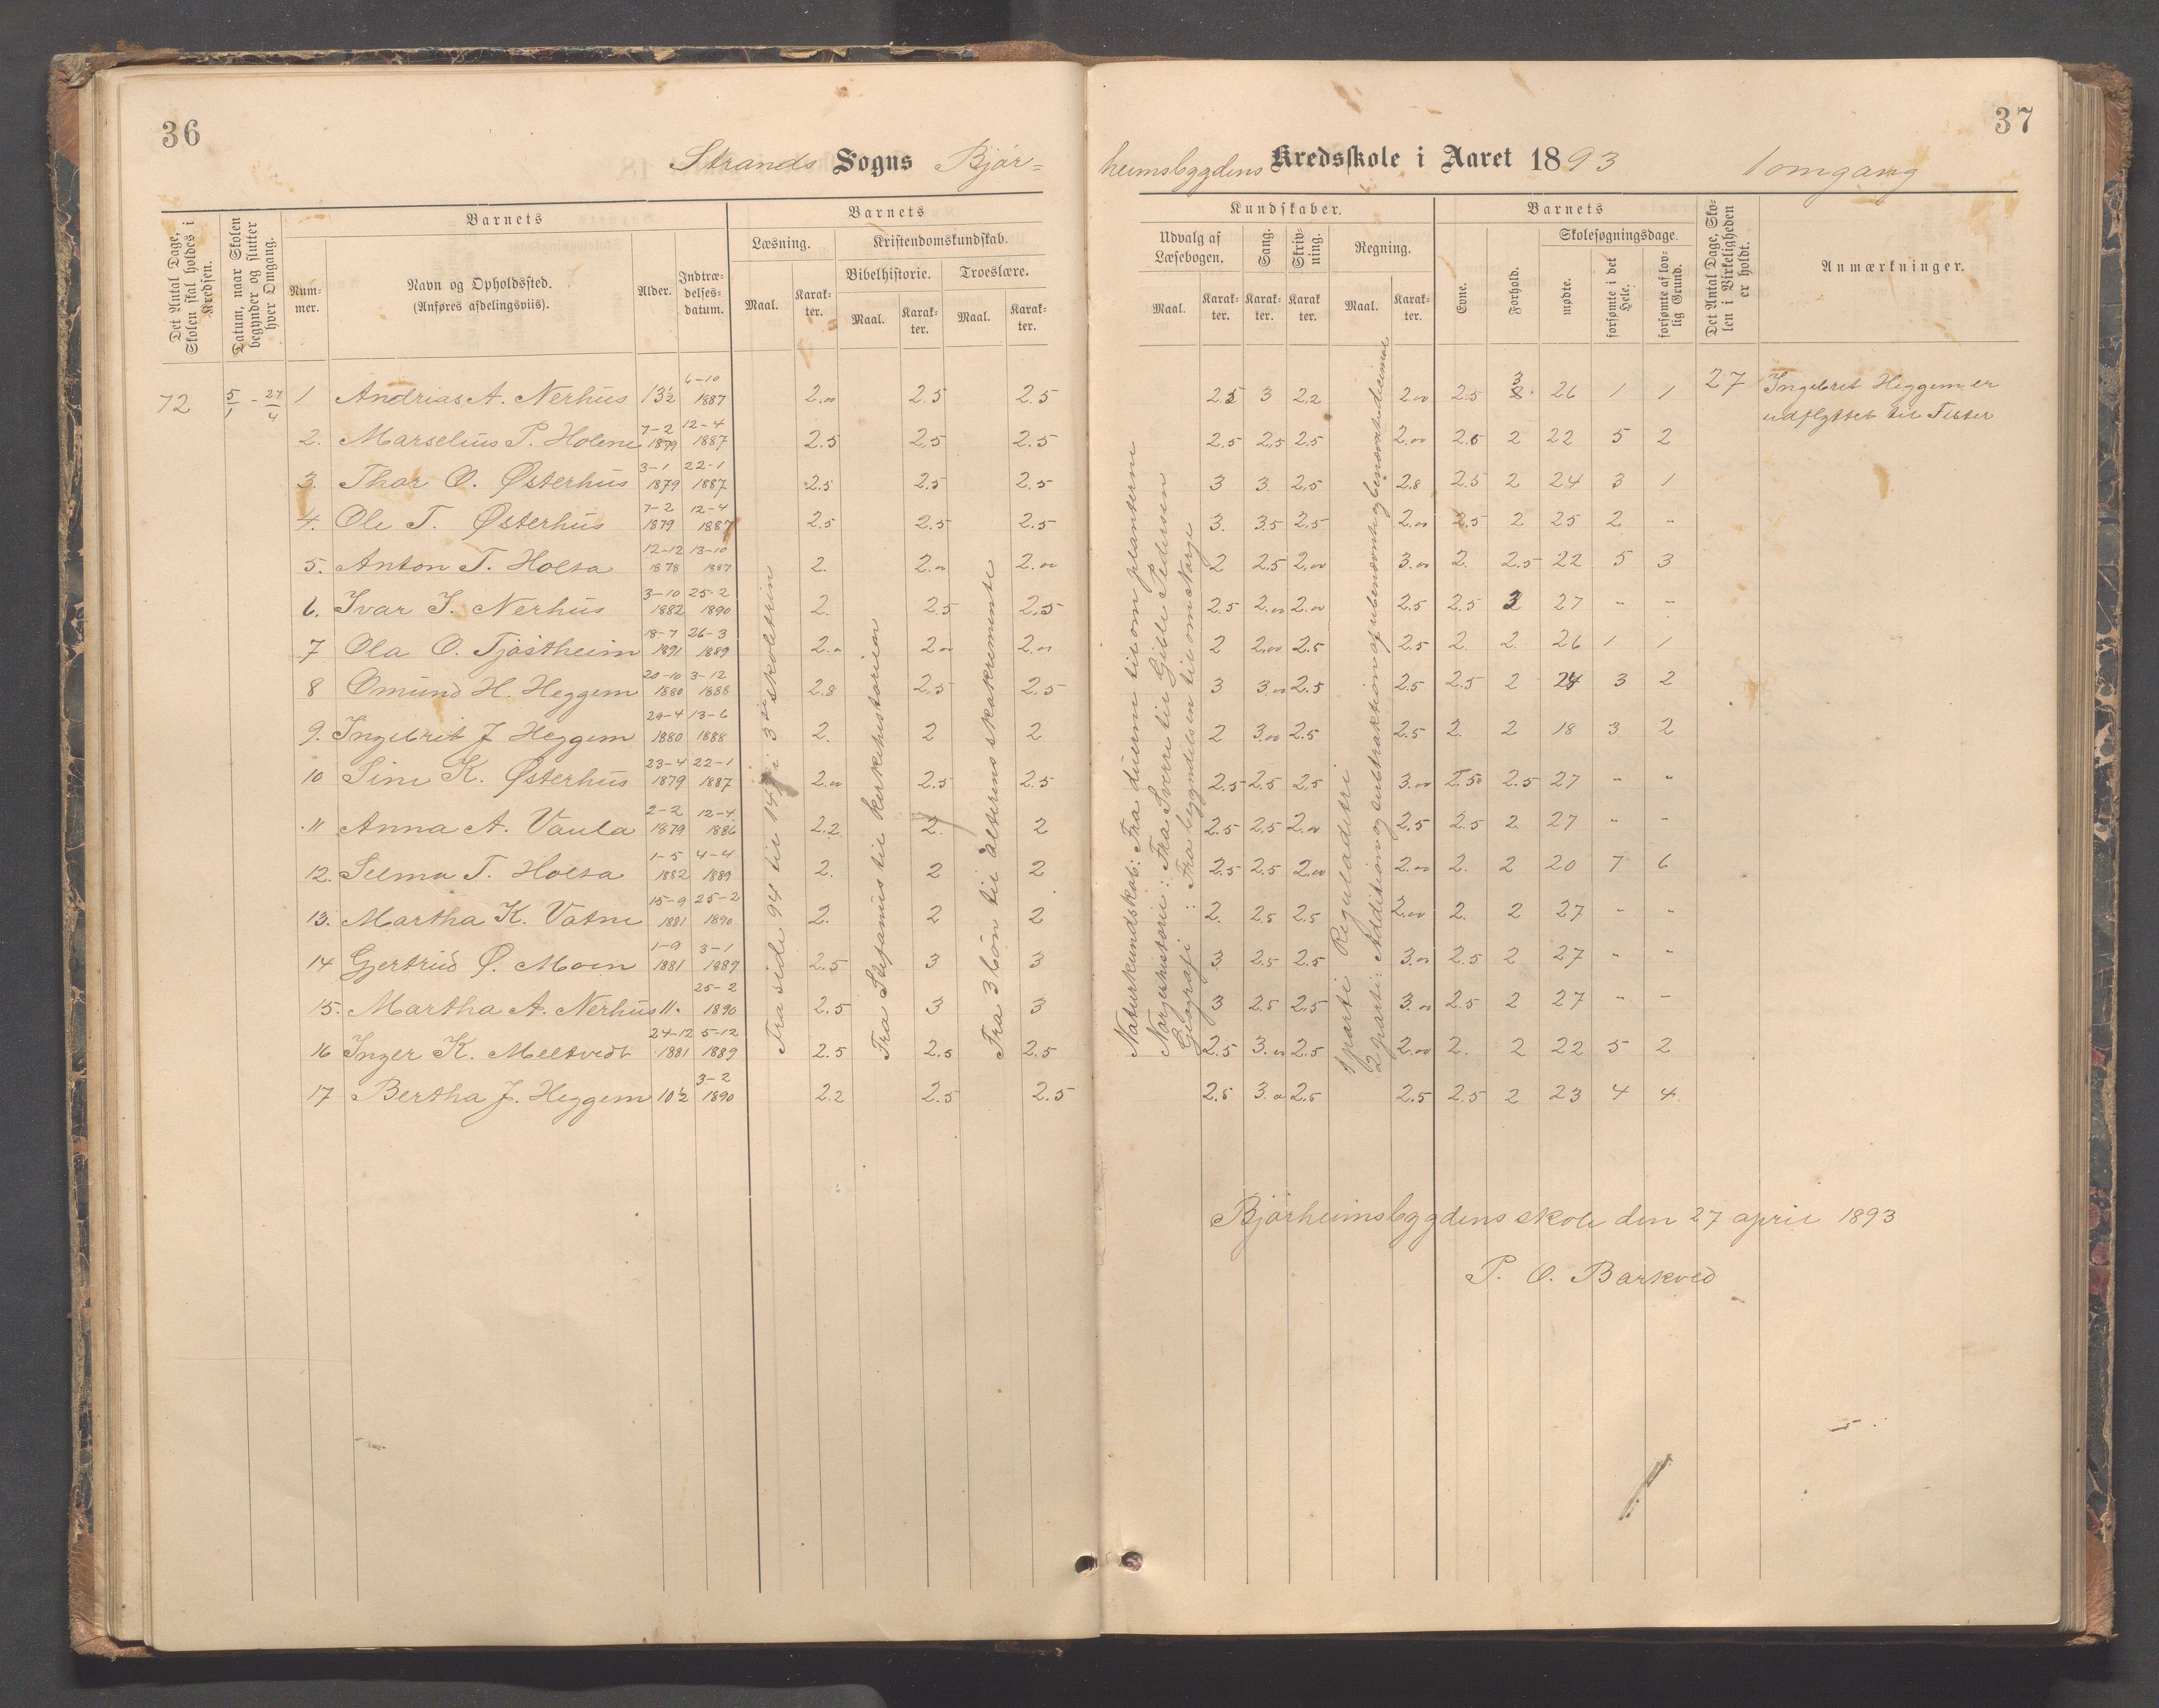 36
Strands Sogns Bjór-
Det Antal Dage, Skolen skal holdes i Kredsen.
Datum, naar Skolen begynder og slutter hver Omgang.
Barnets
Num-mer.
Navn og Opholdssted.
(Anføres afdelingsviis).
Alder.
Indtræ-delses-datum.
Barnets
Læsning.
Kristendomskundskab.
Bibelhistorie.
Troeslære.
Maal.
Karak-ter.
Maal.
Karak-ter.
Maal.
Karak-ter.
72 5/1 - 27/4 1 Andrias A. Nerhus 13½ 6-10 1887 2.00 2.5 2.5
2. Marselius P. Holene 7-2 1879 12-4 1887 2.5 2,5 2.5
3. Thor O. Østerhus 3-1 1879 22-1 1887 2.5 2.5 2.5
4. Ole T. Østerhus 7-2 1879 12-4 1887 2.5 2.5 2.5
5. Anton T. Holta 12-12 1878 13-10 1887 2. 2.00 2.00
6. Ivar I. Nerhus 3-10 1882 25-2 1890 2. 2.5 2.5
7 Ola O. Tjóstheim 18-7 1891 26-3 1889 2.00 2.00 2.00
8 Omund H. Heggem 20-10 1880 3-12 1888 2.8 2.5 2.5
9. Ingebret J Heggem 29-4 1880 13-6 1888 2. 2 2
10 Sine K. Østerhus 23-4 1879 22-1 1887 2.00 2.5 2.5
11 Anna A. Vaula 2-2 1879 12-4 1886 2.2 2. 2
12. Selma T. Holta 1-5 1882 4-4 1889 2. 2 2
13. Martha K. Vatne 15-9 1881 25-2 1890 2. 2 2
14 Gjertrud Ø. Moen 1-9 1881 3-1 1889 2.5 3 3
15. Martha A. Nerhus 11. 25-2 1890 2.5 3 3
16 Inger K. Meltvedt 24-12 1881 5-12 1889 2.5 2.5 2.5
17 Bertha J. Heggem 10½ 3-2 1890 2.2 2.5 2.5
Fra side 94 til 147 i 3 die skoletrin
Fra Stefanus til kirkehistorien
Fra 3 bón til altrens skakremente
37
heimsbygdens Kredsskole i Aaret 1893 1 omgang
Kundskaber.
Udvalg af Læsebogen.
Sang.
Skriv-ning.
Regning.
Maal.
Karak-ter.
Karak-ter.
Karak ter.
Maal.
Karak-ter.
Barnets
Evne.
Forhold.
Skolesøgningsdage.
mødte.
forsømte i det Hele.
forsømte af lov-lig Grund.
Det Antal Dage, Sko-len i Virkeligheden er holdt.
Anmærkninger.
2.5 3 2,2 2.00 2.5 3 26 1 1 27 Ingebret Heggem er
udflyttet til Fister
2.5 2,5 2,5 2.00 2.5 2 22 5 2
3 3. 2,5 2.8 2.5 2 24 3 1
3. 3.5 2,5 2.00 2.5 2 25 2 -
2 2.5 2.00 3.00 2. 2.5 22 5 3
2.5 2.00 2.00 2.5 2.5 3 27 - -
2 2.00 2.5 2.5 2. 2. 26 1 1
3 3.00 2.5 2.5 2.5 2 24 3 2
2 3.00 2.5 2.5 2. 2 18 3 2
2.5 2.5 2,5 3.00 2.50 2.5 27 - -
2.5 2.5 2.00 2.5 2.5 2 27 - -
2.5 2.5 2.00 2.00 2. 2 20 7 6
2. 2.5 2.5 2.00 2. 2 27 - -
3 2.5 2.5 3.00 2.5 2 27 - -
3 2.5 2,5 3.00 2.5 2 27 - -
2.5 3.00 2.5 2.00 2. 2 22 5 2
2.5 3.00 2.5 2.5 2.5 2 23 4 4
Naturkundskab: Fra duerne til om planterne
Norgeshistorie: Fra Sverre til Gible Pedersen
Geografi: Fra begyndelsen til om Norge
1 parti Reguladetri
2 parti: Addition og subtraktion af ubenævnte og benævnte decimal
Bjórheimsbygdens skole den 27 april 1893
P. O. Barkved